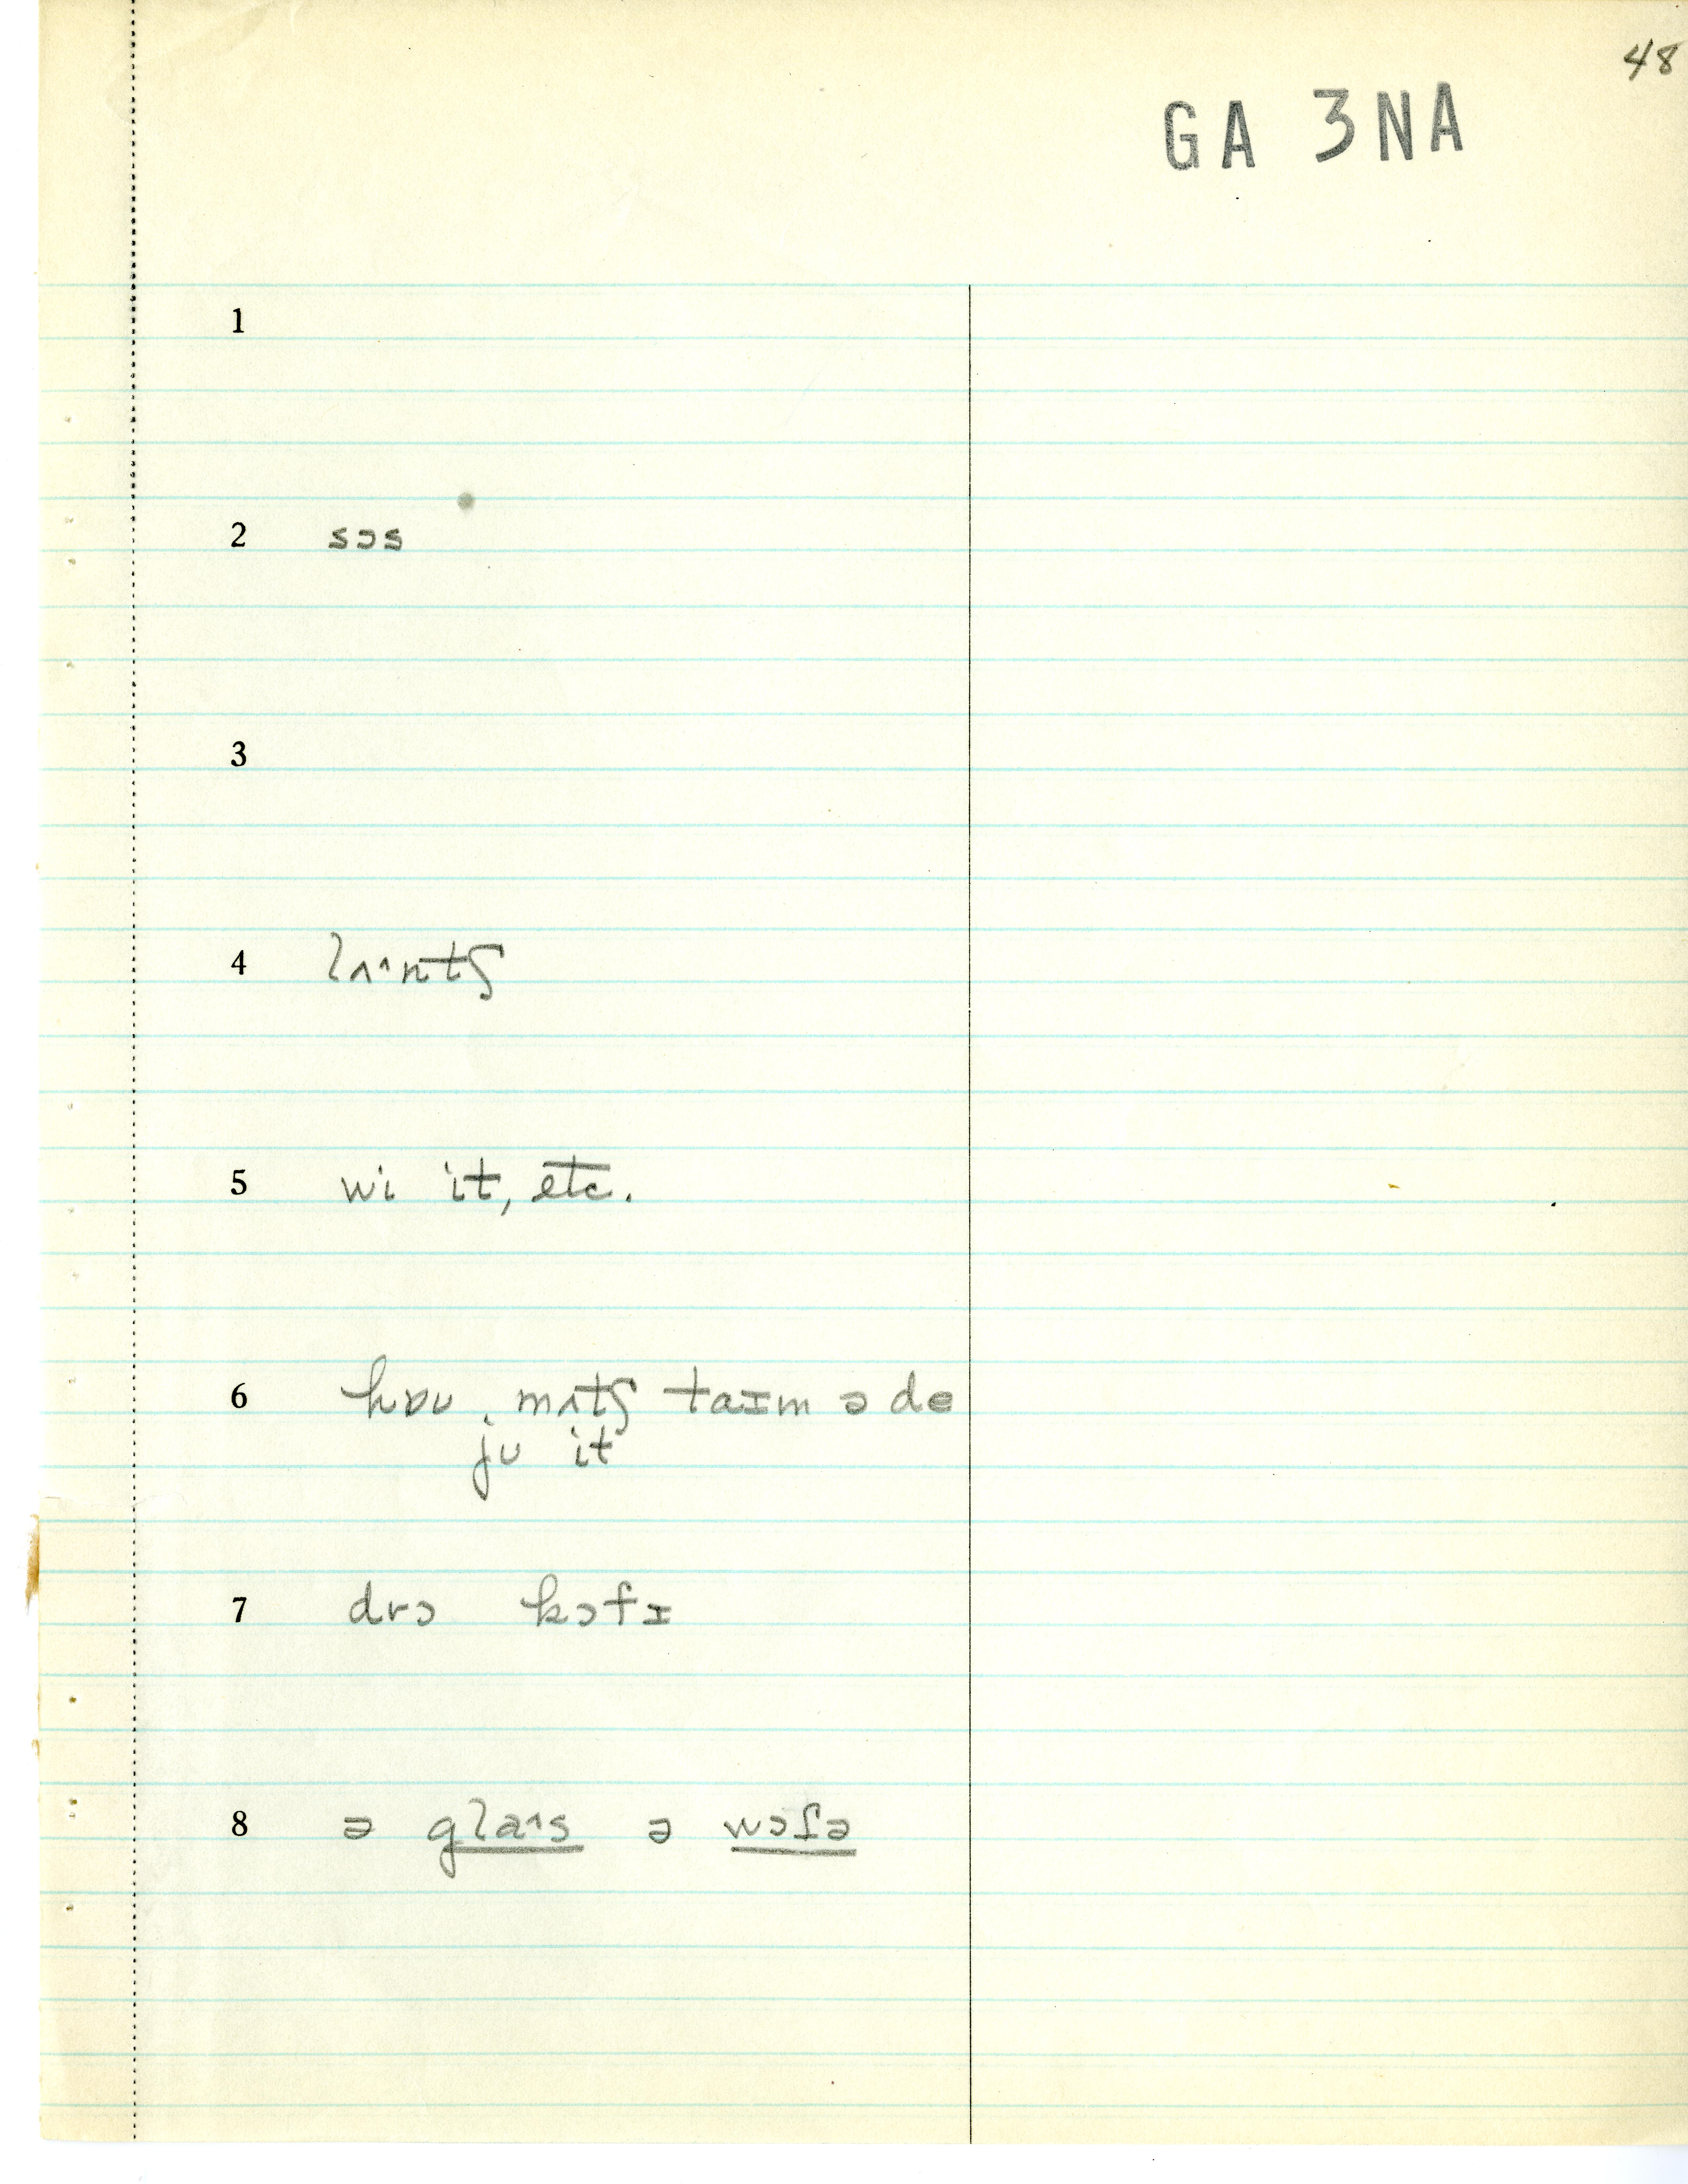 48
GA 3NA
1
2 sɔs
3
4 lʌ^ntʃ
5 wi it, etc.
6 hɒʊ mʌtʃ taɪm ə de
jʊ it
7 drɔ kɔfɪ
8 ə gla^s ə wɔʃə